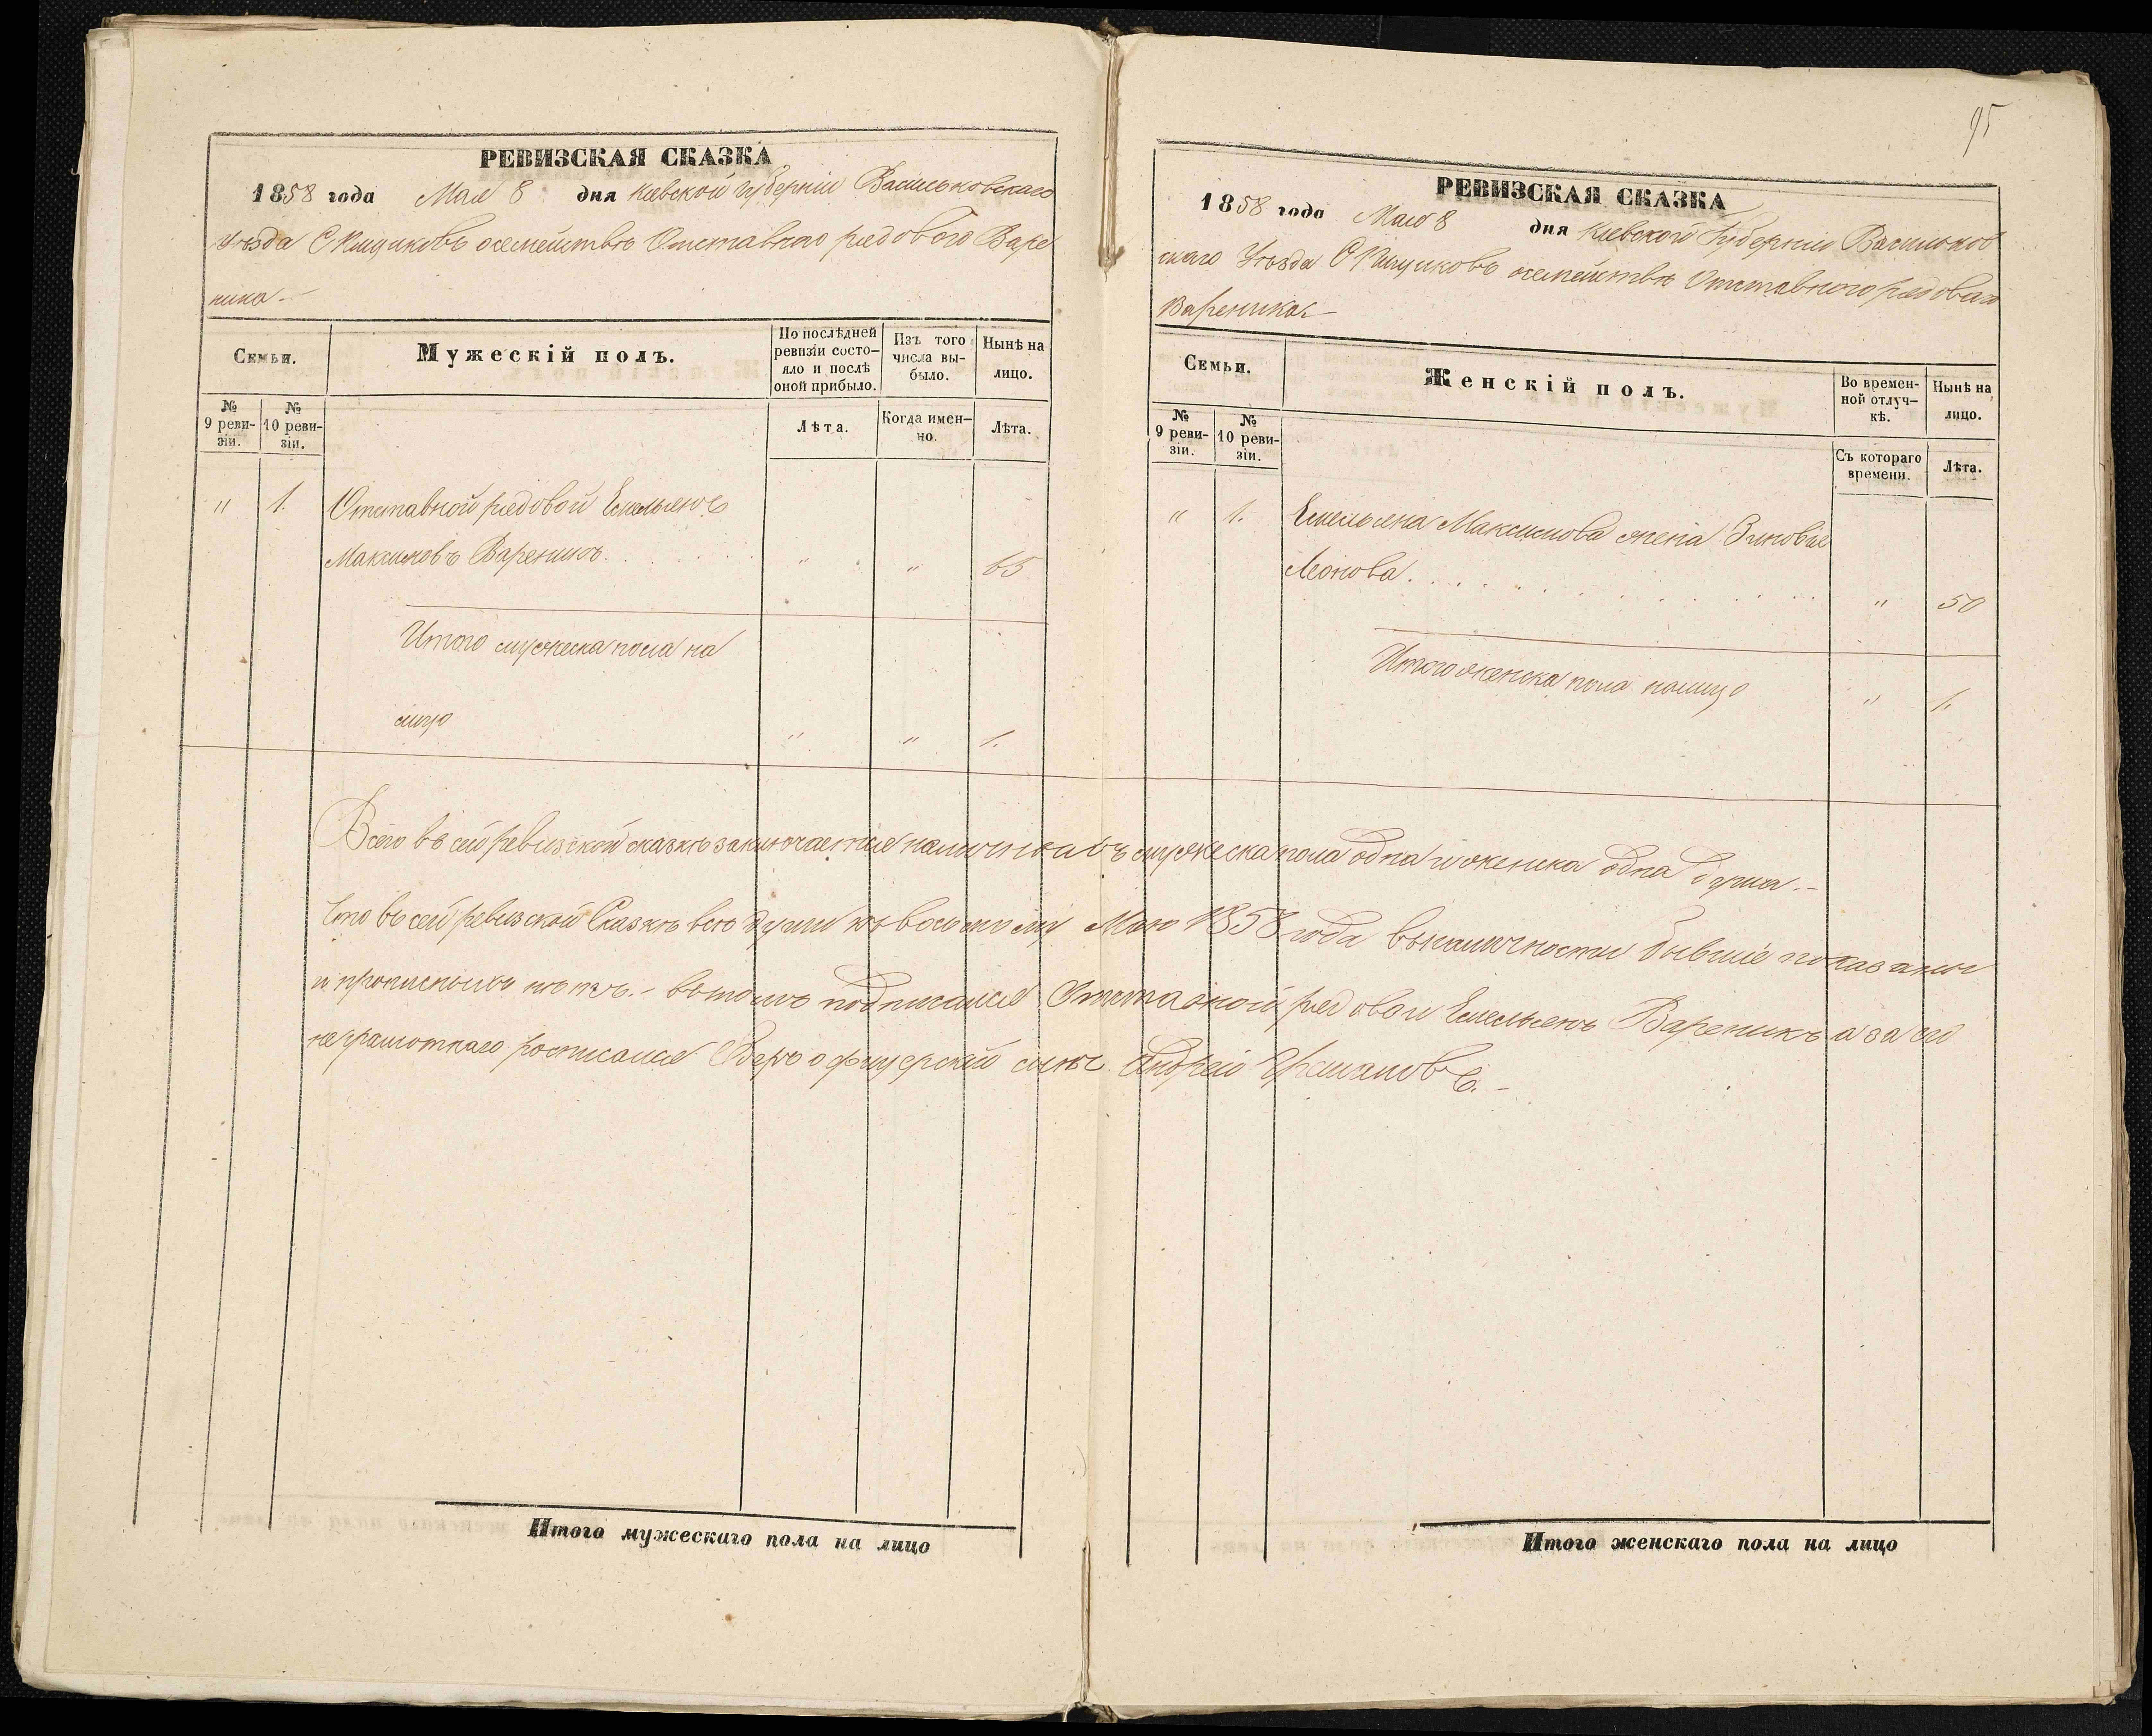 95
РЕВИЗСКАЯ СКАЗКА
1858 года Мая 8 дня Кіевской губерніи Васильковскаго
уѣзда С Кищиковъ осемействѣ Отставного рядового Варе
ника.-
Семьи.
Мужескій полъ.
По послѣдней ревизіи состо-яло и послѣ оной прибыло.
Изъ того числа вы-было.
Нынѣ на лицо.
№ 9 реви-зіи.
№ 10 реви-зіи.
Лѣта.
Когда имен-но.
Лѣта.
" 1. Отставной рядовой Емельянъ
Максимовъ Вареникъ. . . . . " " 65
Итого мужеска пола на
лицо " " 1.
РЕВИЗСКАЯ СКАЗКА
1858 года Мая 8 дня Кіевской Губерніи Васильков
скаго Уѣзда С Кищиковъ осемействѣ Отставного рядоваго
Вареника.-
Семьи.
Женскій полъ.
Во времен-ной отлуч-кѣ.
Нынѣ на лицо.
№ 9 реви-зіи.
№ 10 реви-зіи.
Съ котораго времени.
Лѣта.
" 1. Емельяна Максимова жена Зиновія
Леонова. . . . . . . . . . " 50
Итого женска пола налицо " 1.
Всего въ сей ревизской сказкѣ заключается наличныхъ мужеска пола одна и женска одна душа.-
Что въ сей ревизской Сказкѣ всѣ души къ восьмому Маю 1858 года въ наличности бывшіе показаны
и прописныхъ нѣтъ.- вътомъ подписался Отставной рядовой Емельянъ Вареникъ а за его
неграмотнаго росписался Оберъ офицерскій сынъ Андрей
Итого мужескаго пола на лицо
Итого женскаго пола на лицо